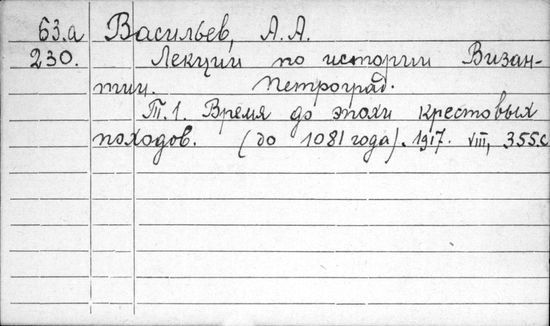 63.а Васильев, А.А.
230. Лекции по истории Визан-
тии. Петроград.
Т.1. Время до эпохи крестовых
походов. (до 1081 года). 1917. VIII, 355.с